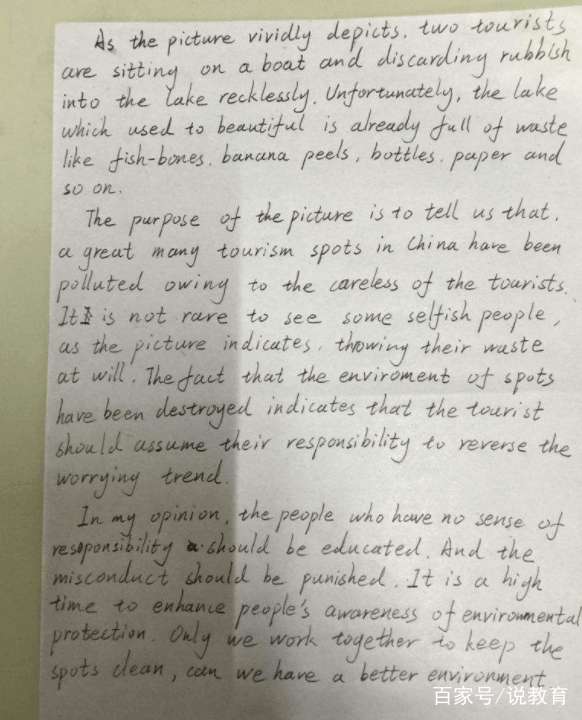 As the picture vividly depicts, two tourists
are sitting on a boat and discarding rubbish
into the lake recklessly. Unfortunately, the lake
which used to beautiful is already full of waste
like fish-bones, banana peels, bottles, paper and
so on.
The purpose of the picture is to tell us that,
a great many tourism spots in China have been
polluted owing to the careless of the tourists.
It is not rare to see some selfish people,
as the picture indicates, throwing their waste
at will. The fact that the enviroment of spots
have been destroyed indicates that the tourist
should assume their responsibility to reverse the
worrying trend.
In my opinion, the people who have no sense of
resoponsibility should be educated. And the
misconduct should be punished. It is a high
time to enhance people's awareness of environmental
protection. Only we work together to keep the
spots clean, can we have a better environment
百家号/说教育